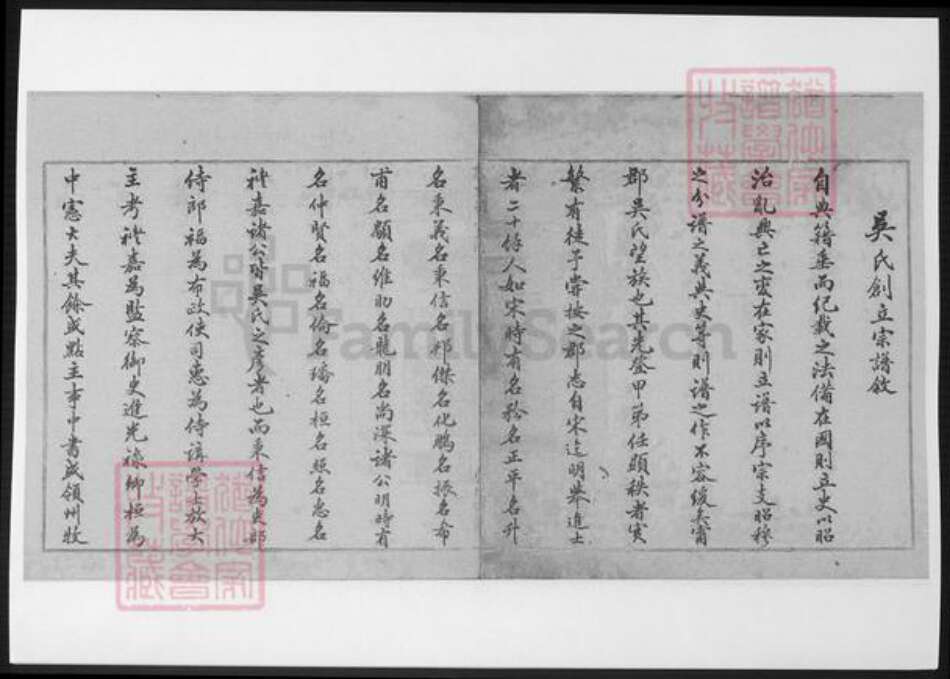 吳氏創立宗譜敘
自典籍垂而紀載之法備在國則立史以昭
治亂興亡之由在家則立譜以序宗支昭穆
之分譜之義與史等則譜之作不容緩矣甯
郡吳氏望族也其先登甲第任顯秩者寔
繁有徒予嘗按之郡志自宋迄明舉進士
者二十餘人如宋時有名 名正平名升
名秉義名秉信名 傑名化鵬名振名希
甫名 名維 名龍朋名尚深諸公明時有
名仲賢名福名倫名璠名桓名照名惠名
禮嘉諸公皆吳氏之彥者也而秉信為吏部
侍郎福為布政使司惠為侍讀學士放大
主考禮嘉為監察御史進光祿卿桓為
中憲大夫其餘或點主事中書或領州牧
猶他家譜學會收藏
FamilySearch
猶他家譜學會收藏